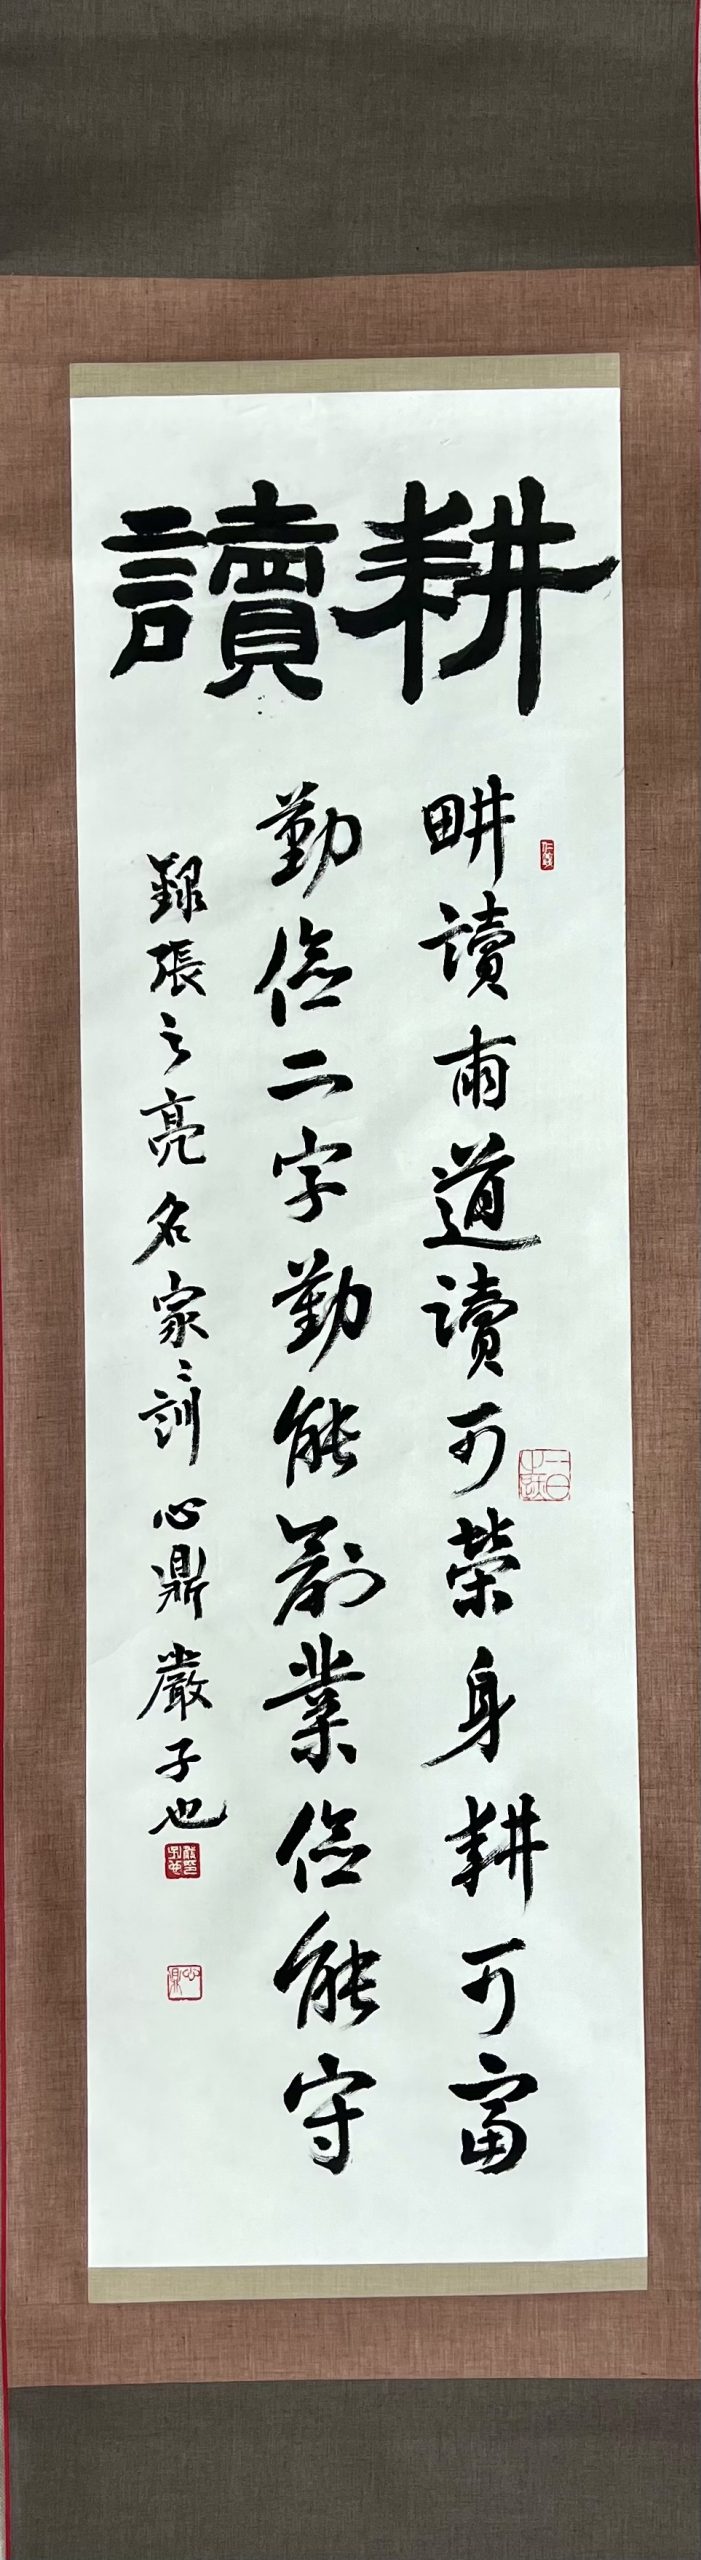 耕讀
畊讀兩道讀可榮身耕可富
勤儉二字勤能創業儉能守
錄張之亮名家〻訓心鼎嚴子也
心鼎